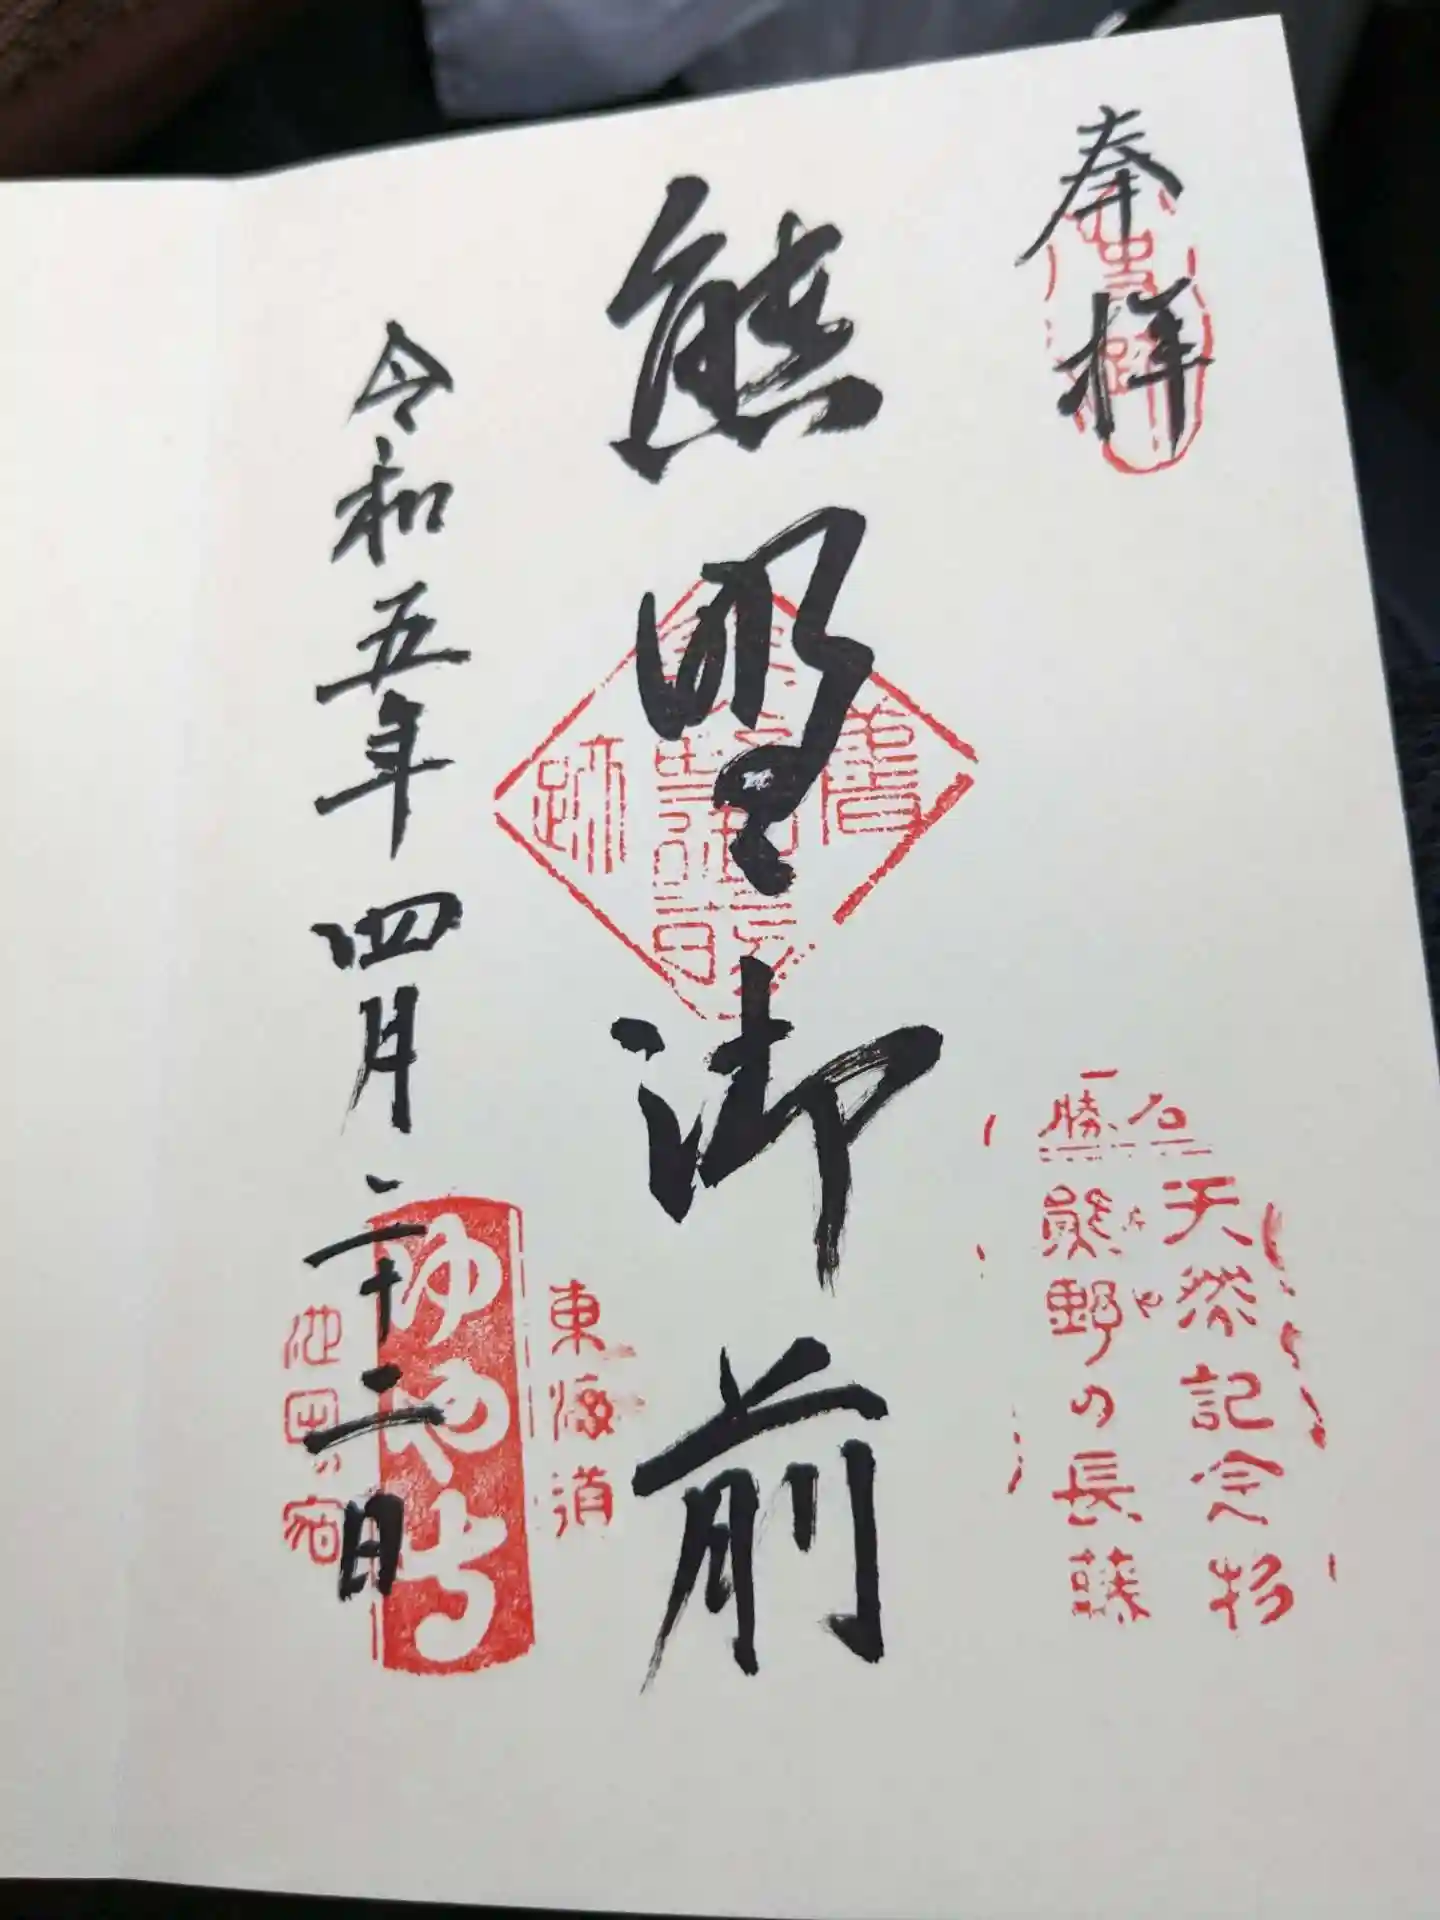 奉拝
天然記念物
一名
勝
熊野の長藤
熊野御前
善
跡
東海道
ゆや寺
池田ノ宿
令和五年四月二十二日